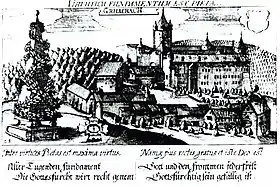 VIRTUTUM FUNDAMENTUM EST PIETAS
GRONENBACH
Inter virtutes Pietas est maxima virtus. Namq; pius rectus gratus et iste Deo est.
Aller Tugenden fundament Gott und den frommen ieder frist
Die Gottesfurcht wirt recht genent Gottsfürchtig sein gefällig ist